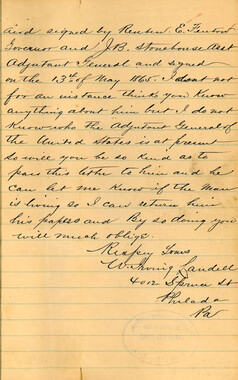 and signed by Reuben E. Fenton
Governor and J.B. Stonehouse Asst
Adjutant General and signed
on the 13th of May 1865. I do not
for an instance think you know
anything about him but I do not
know who the Adjutant General of
the United States is at present
so will you be so kind as to
pass this letter to him and he
can let me know if the man
is living so I can return him
his papers and By so doing you
will much oblige.
Respy Yours
W. Irving Landell
4012 Spruce St
Philada
Pa